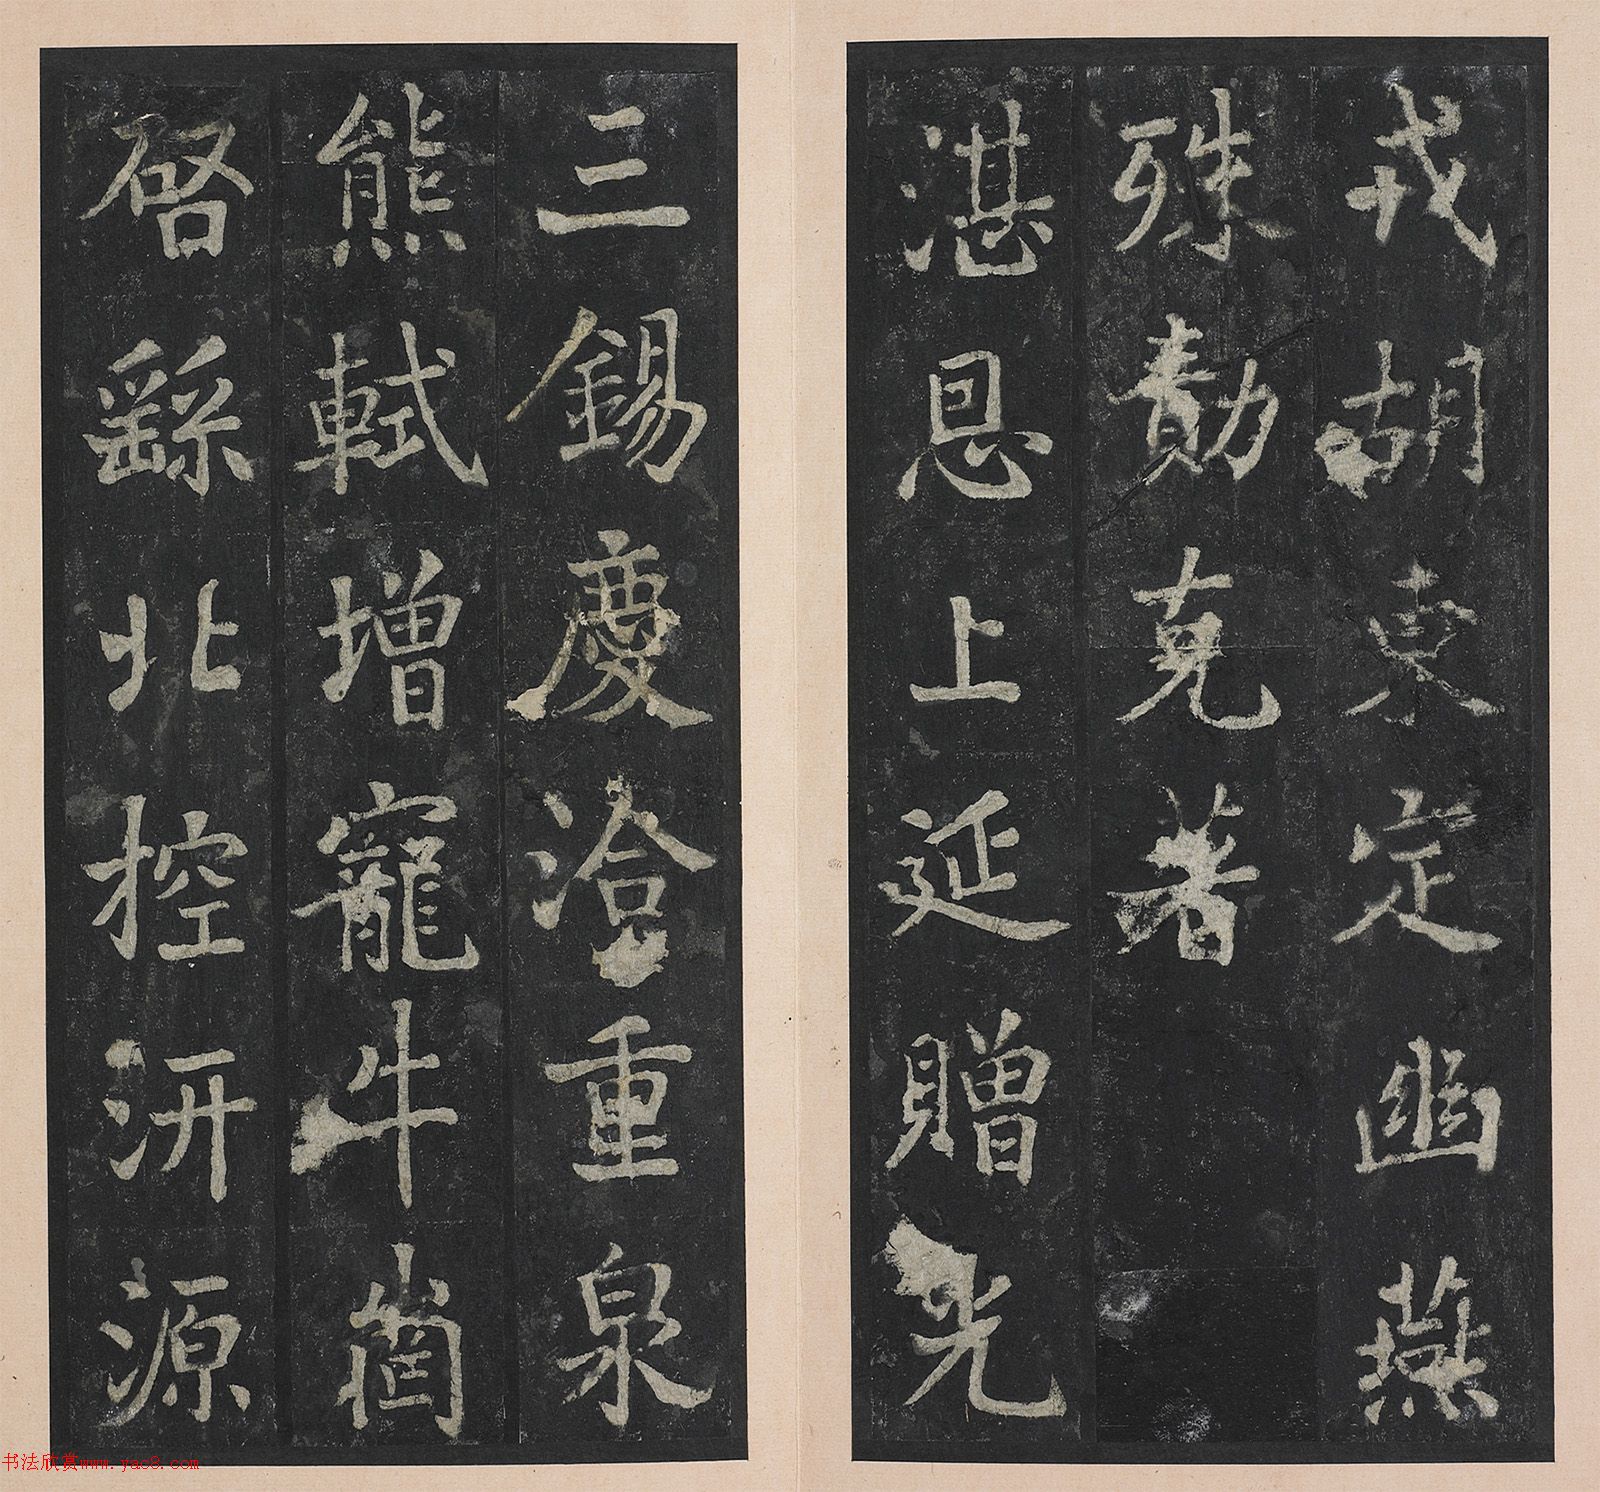 戎胡東定幽燕
殊勣克著
湛恩上延贈光
三錫慶洽重泉
熊軾增寵牛崗
啓繇北控汧源
书法欣赏www.yac8.com